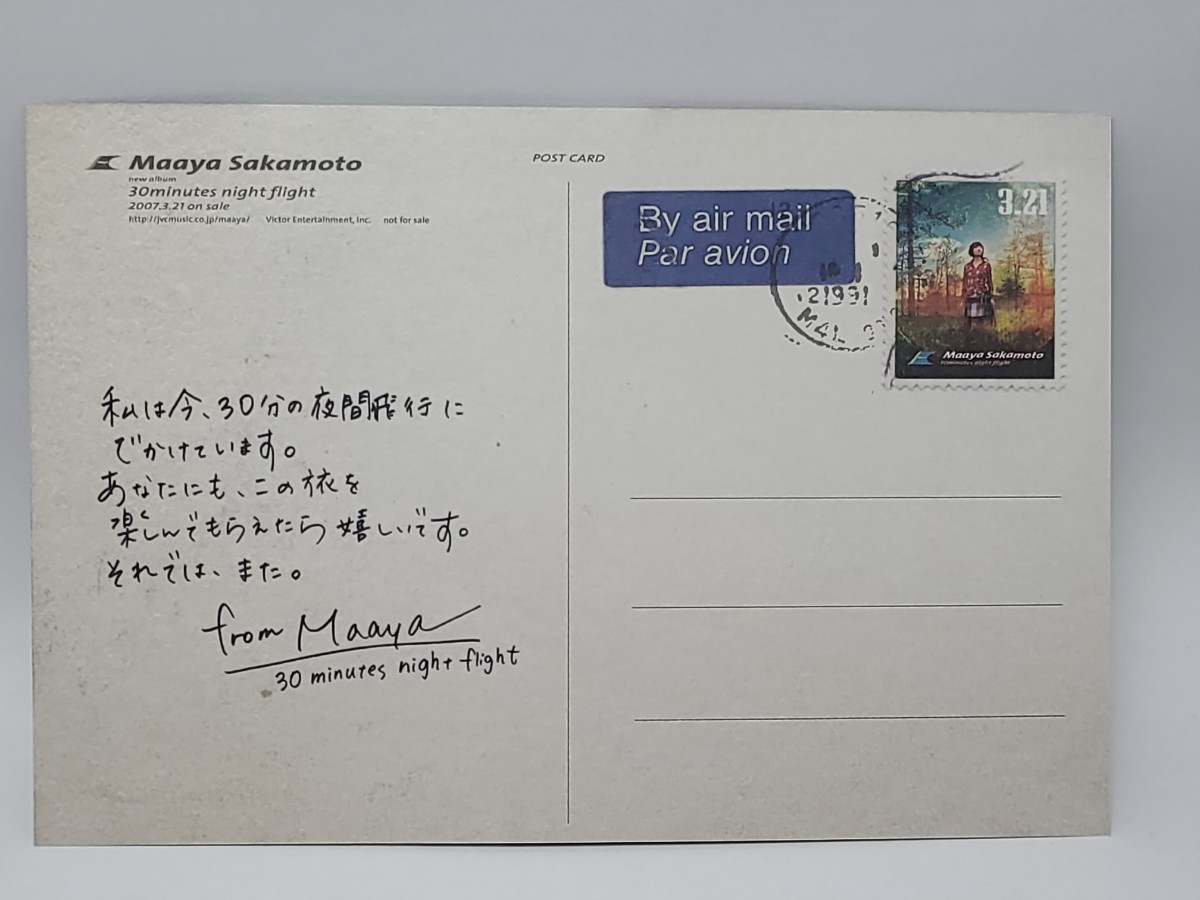 Maaya Sakamoto
new album
30minutes night flight
2007.3.21 on sale
http://jvcmusic.co.jp/maaya/ Victor Entertainment, Inc. not for sale
POST CARD
By air mail
Par avion
21991
3.21
Maaya Sakamoto
30minutes night flight
私は今、30分の夜間飛行に
でかけています。
あなたにも、この旅を
楽しんでもらえたら嬉しいです。
それでは、また。
from Maaya
30 minutes night flight